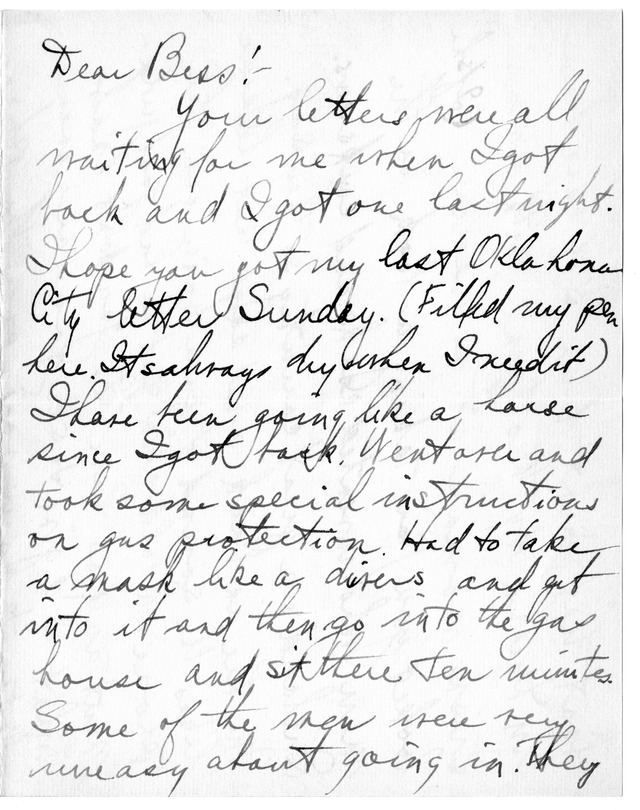 Dear Bess:-
Your letters were all
waiting for me when I got
back and I got one last night.
I hope you got my last Oklahoma
City letter Sunday. (Filled my pen
here. Its always dry when I need it)
I have been going like a horse
since I got back. Went over and
took some special instructions
on gas protection. Had to take
a mask like a divers and get
into it and then go into the gas
house and sit there ten minutes.
Some of the men were very
uneasy about going in. They